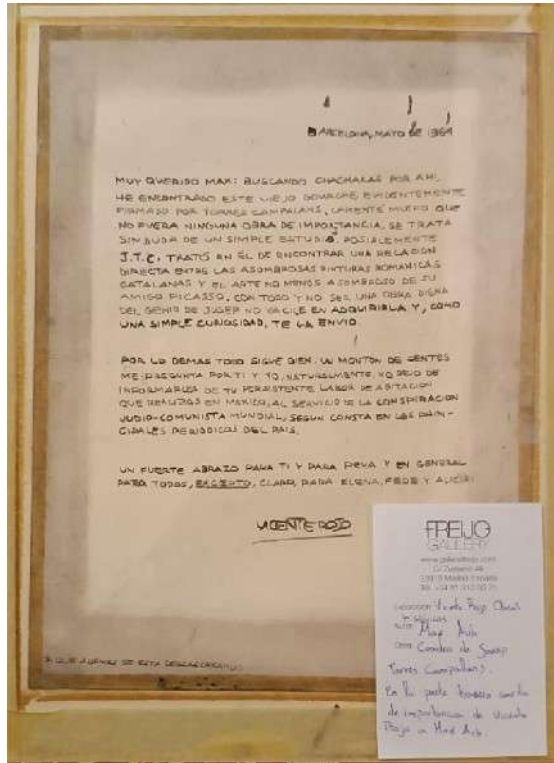 BARCELONA, MAYO DE 1964
MUY QUERIDO MAX: BUSCANDO CHACHARAS POR AHI,
HE ENCONTRADO ESTE VIEJO GOUACHE, EVIDENTEMENTE
FIRMADO POR TORRES CAMPALANS. LAMENTE MUCHO QUE
NO FUERA NINGUNA OBRA DE IMPORTANCIA, SE TRATA
SIN DUDA DE UN SIMPLE ESTUDIO. POSIBLEMENTE
J.T.C. TRATO EN EL DE ENCONTRAR UNA RELACION
DIRECTA ENTRE LAS ASOMBROSAS PINTURAS ROMANICAS
CATALANAS Y EL ARTE NO MENOS ASOMBROSO DE SU
AMIGO PICASSO. CON TODO Y NO SER UNA OBRA DIGNA
DEL GENIO DE JUSEP NO VACILE EN ADQUIRIRLA Y, COMO
UNA SIMPLE CURIOSIDAD, TE LA ENVIO.
POR LO DEMAS TODO SIGUE BIEN. UN MONTON DE GENTES
ME PREGUNTA POR TI Y YO, NATURALMENTE, NO DEJO DE
INFORMARLES DE TU PERSISTENTE LABOR DE AGITACION
QUE REALIZAS EN MEXICO, AL SERVICIO DE LA CONSPIRACION
JUDIO-COMUNISTA MUNDIAL, SEGUN CONSTA EN LOS PRIN-
CIPALES PERIODICOS DEL PAIS.
UN FUERTE ABRAZO PARA TI Y PARA PEUA Y EN GENERAL
PARA TODOS, EXCEPTO, CLARO, PARA ELENA, FEDE Y ALICIA.
VICENTE ROJO
FREIJO
GALLERY
www.galeriafreijo.com
C/ Zurbano 46
28010 Madrid España
Vicente Rojo Obras
Max Aub
Cuadro de Jusep
Torres Campalans.
En la parte trasera carta
de importancia de Vicente
Rojo a Max Aub.